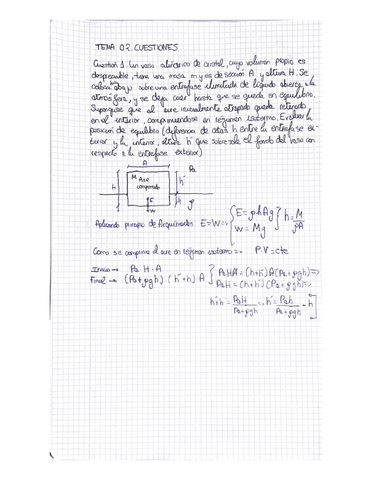 TEMA 02. CUESTIONES
Cuestión 1. Un vaso cilíndrico de cristal, cuyo volumen propio es
despreciable, tiene una masa m y es de sección A y altura H. Se
coloca abajo sobre una entrefase ilimitada de líquido abierta a la
atmósfera, y se deja caer hasta que se queda en equilibrio.
Supóngase que el aire inicialmente atrapado queda retenido
en el interior, comprimiéndose en régimen isotermo. Evaluar la
posición de equilibrio (diferencia de cotas h entre la entrefase ex-
terior y la interior, altura h' que sobresale el fondo del vaso con
respecto a la entrefase exterior)
A
Pa
M Aire
comprimido
h'
H
h
ρ
E
W
Aplicando principio de Arquímedes: E=W => { E = ρhAg
W = Mg } h = M/ρA
Como se comprime el aire en régimen isotermo => P·V = cte
Inicio → Pa·H·A
Final → (Pa+ρgh)·(h'+h)·A } PaHA = (h+h')A(Pa+ρgh) =>
PaH = (h+h')(Pa+ρgh) =>
h'+h = PaH/Pa+ρgh => h' = PaH/Pa+ρgh - h